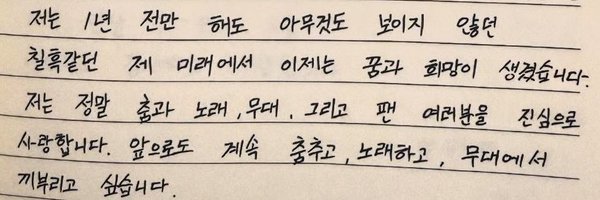 저는 1년 전만 해도 아무것도 보이지 않던
칠흑같던 제 미래에서 이제는 꿈과 희망이 생겼습니다.
저는 정말 춤과 노래, 무대, 그리고 팬 여러분을 진심으로
사랑합니다. 앞으로도 계속 춤추고, 노래하고, 무대에서
끼부리고 싶습니다.